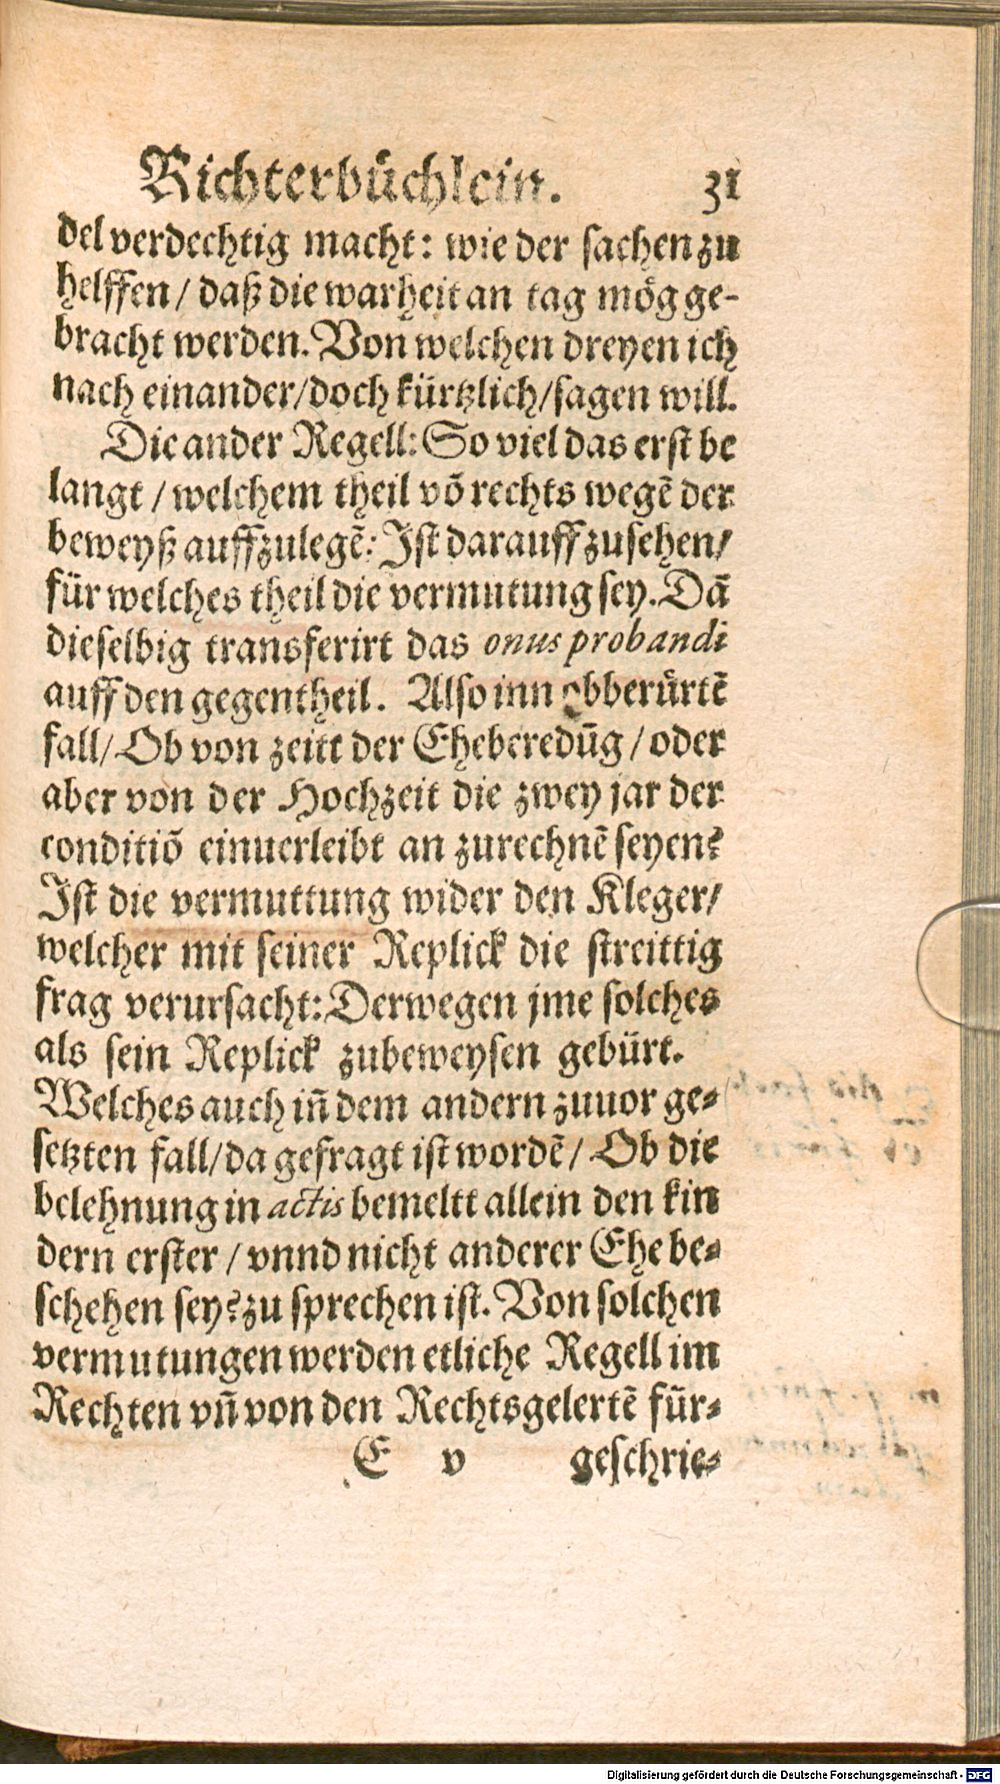 Richterbüchlein. 31
del verdechtig macht: wie der sachen zu
helffen / daß die warheit an tag mög ge-
bracht werden. Von welchen dreyen ich
nach einander/doch kürtzlich/sagen will.
Die ander Regell: So viel das erst be
langt / welchem theil vō rechts wegē der
beweyß auffzulegē: Ist darauff zusehen/
für welches theil die vermutung sey. Dā
dieselbig transferirt das onus probandi
auff den gegentheil. Also inn obberürtē
fall/ Ob von zeitt der Eheberedūg / oder
aber von der Hochzeit die zwey jar der
conditiō einuerleibt an zurechnē seyen?
Ist die vermuttung wider den Kleger/
welcher mit seiner Replick die streittig
frag verursacht: Derwegen jme solches
als sein Replick zubeweysen gebürt.
Welches auch iñ dem andern zuuor ge-
setzten fall/da gefragt ist wordē / Ob die
belehnung in actis bemeltt allein den kin
dern erster / vnnd nicht anderer Ehe be-
schehen sey? zu sprechen ist. Von solchen
vermutungen werden etliche Regell im
Rechten vñ von den Rechtsgelertē für-
E v geschrie-
Digitalisierung gefördert durch die Deutsche Forschungsgemeinschaft - DFG